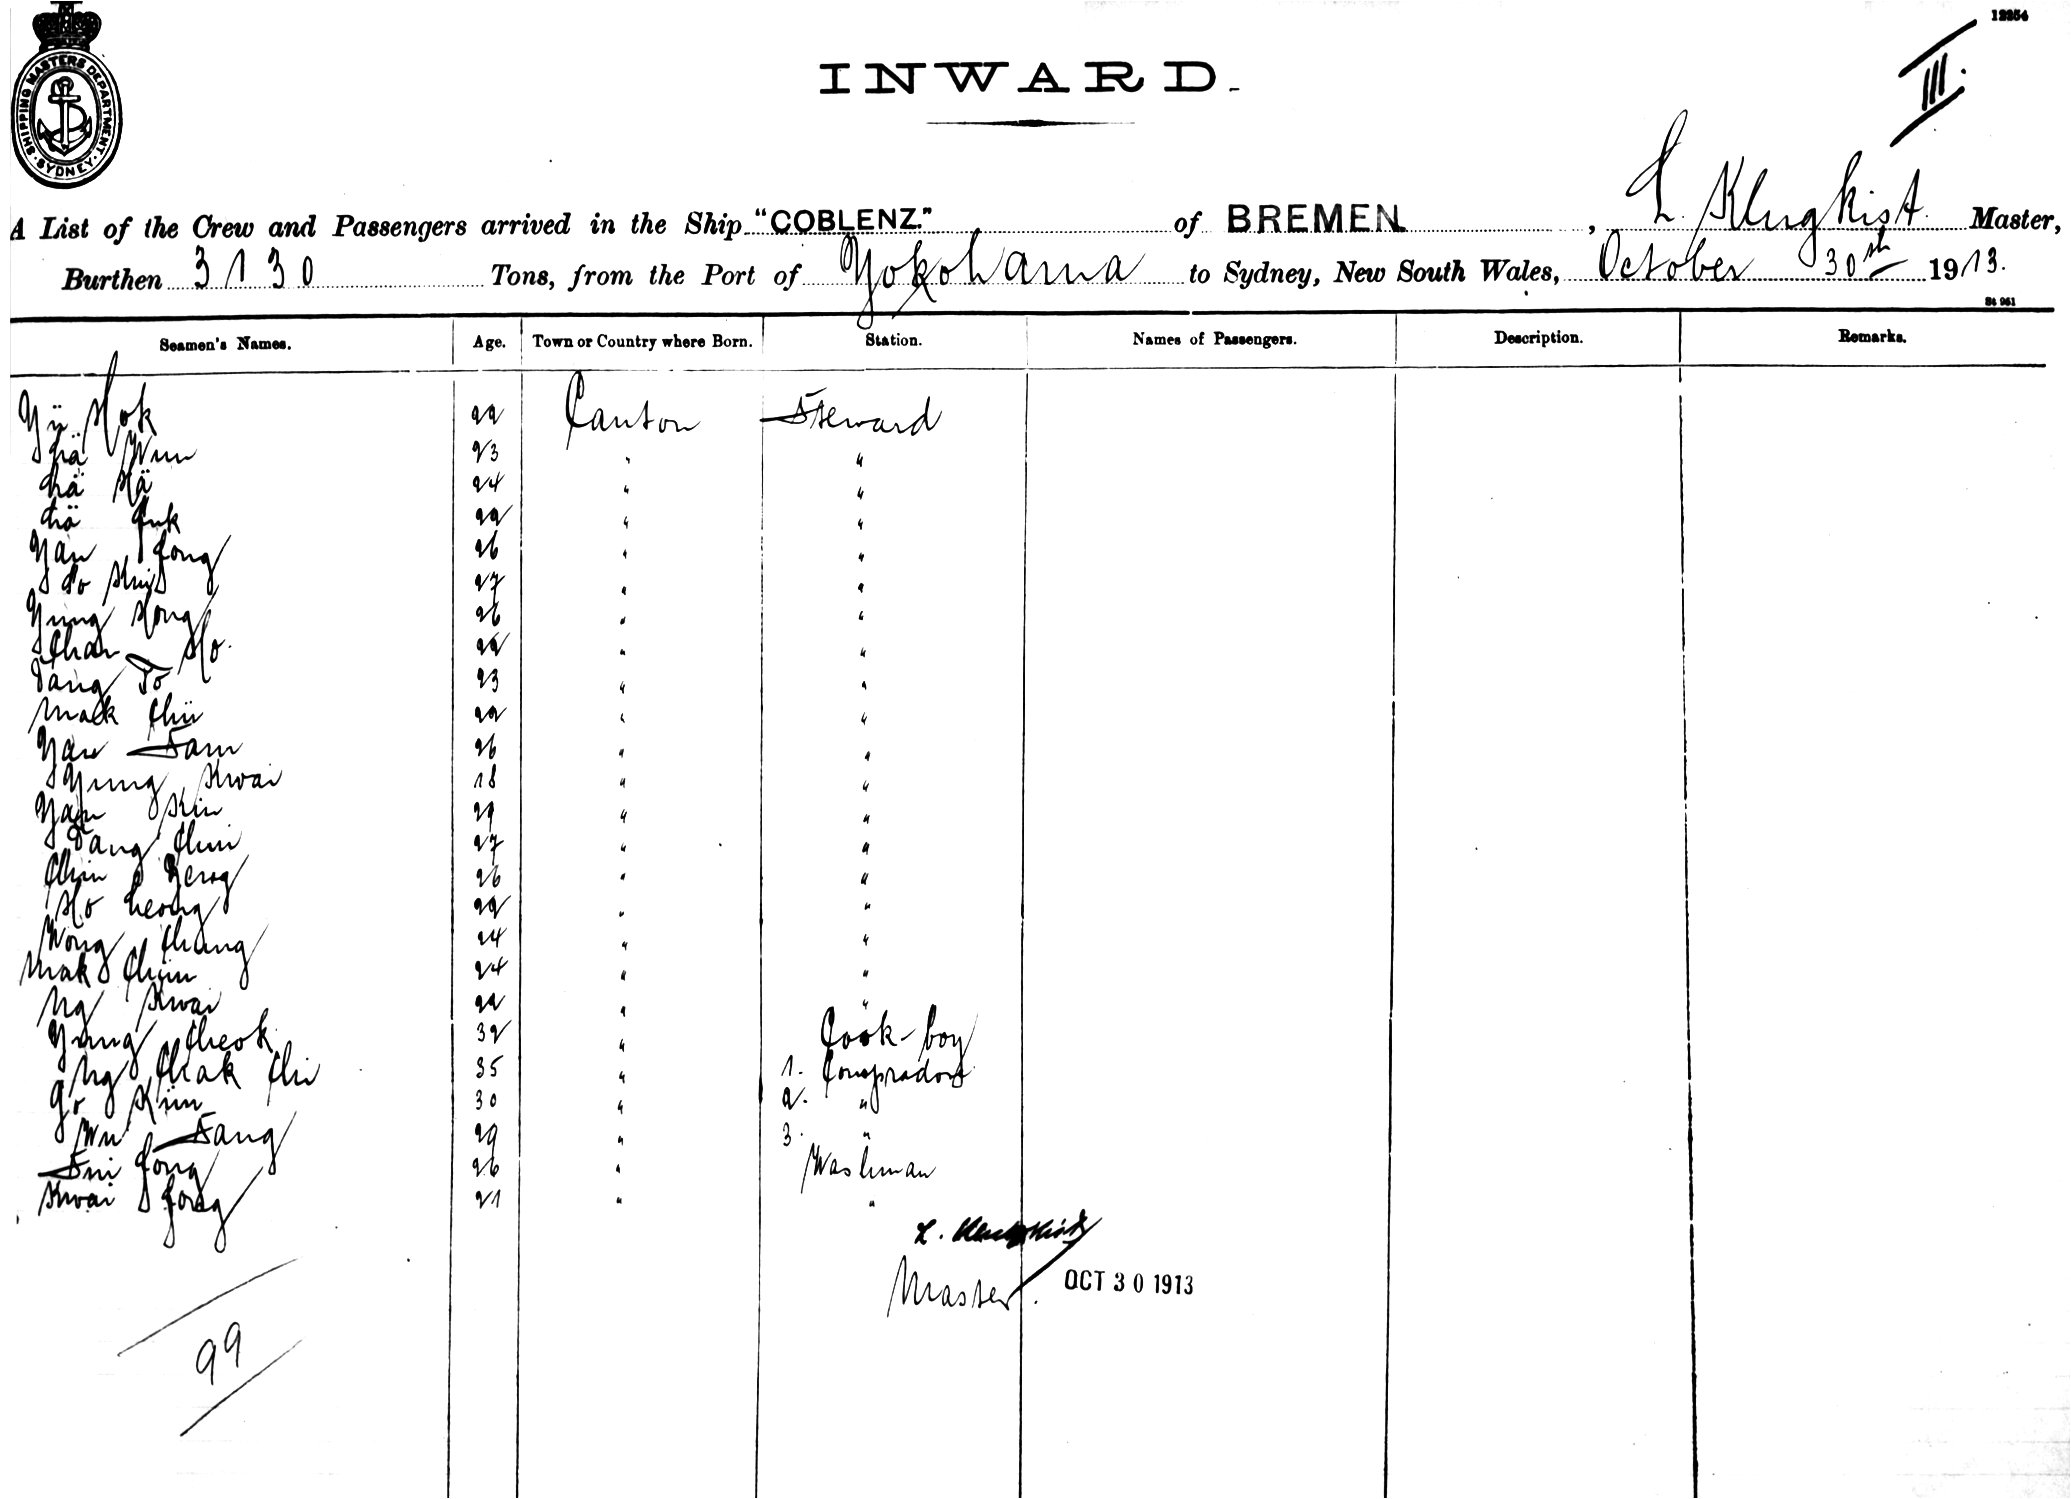 12254
SHIPPING MASTERS DEPARTMENT. SYDNEY.
INWARD.
III.
A List of the Crew and Passengers arrived in the Ship "COBLENZ." of BREMEN, L. Klugkist. Master,
Burthen 3130 Tons, from the Port of Yokohama to Sydney, New South Wales, October 30th 1913.
St 961
Seamen's Names. Age. Town or Country where Born. Station. Names of Passengers. Description. Remarks.
Yü Hok 22 Canton Steward
Wun 23 " "
Hä 24 " "
22 " "
Yau Fong 26 " "
27 " "
Yung Hong 26 " "
Chan Ho. 22 " "
Tang To 23 " "
Mack Chü 22 " "
Yau Sam 26 " "
Yung Kwai 18 " "
Yau Kin 29 " "
Tang Chui 27 " "
Chin 26 " "
Ho Leong 22 " "
Wong Chung 24 " "
Mak Chün 24 " "
Ng Kwai 22 " "
Yung Cheok 32 " Cook-boy
Ng Chak Chi 35 " 1. Compradore
Go Kün 30 " 2. "
Wu Sang 29 " 3. "
Sui Fong 26 " Washman
Kwai Fong 21 " "
L. Klugkist
Master.
OCT 30 1913
99